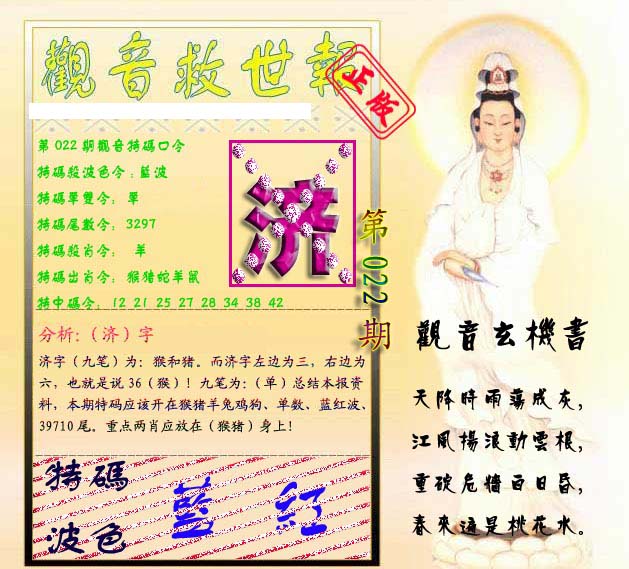 觀音救世報
正版
第022期觀音特碼口令
特碼殺波色令:藍波
特碼單雙令: 單
特碼尾數令: 3297
特碼殺肖令: 羊
特碼出肖令: 猴豬蛇羊鼠
特中碼令: 12 21 25 27 28 34 38 42
济
第022期
分析:（济）字
济字（九笔）为: 猴和猪。而济字左边为三，右边为
六，也就是说36（猴）！九笔为:（单）总结本报资
料，本期特码应该开在猴猪羊兔鸡狗、单数、蓝红波、
39710尾。重点两肖应放在（猴猪）身上!
特碼
波色
藍 红
觀音玄機書
天降時雨蕩成灰，
江風揚浪動雲根，
重碇危檣白日昏，
春來遍是桃花水。